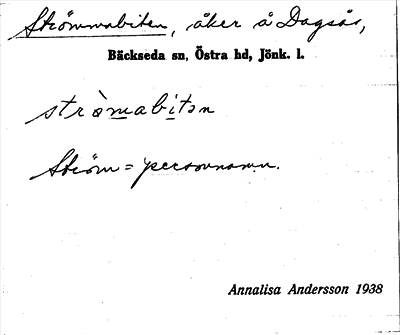 Strömmabiten, åker å Dagsås,
Bäckseda sn, Östra hd, Jönk. l.
stròmabitən
Ström = personnamn.
Annalisa Andersson 1938